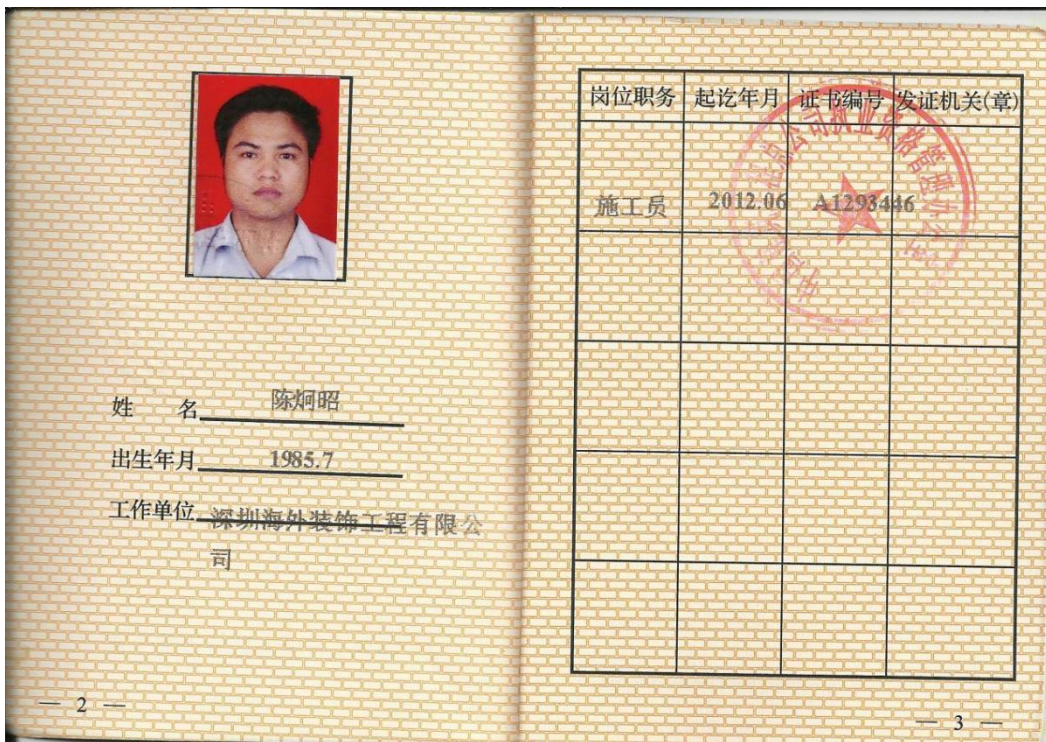 姓 名 陈炯昭
出生年月 1985.7
工作单位 深圳海外装饰工程有限公
司
— 2 —
岗位职务 起讫年月 证书编号 发证机关(章)
施工员 2012.06 A1293446
公司执业资格管理办公室
— 3 —